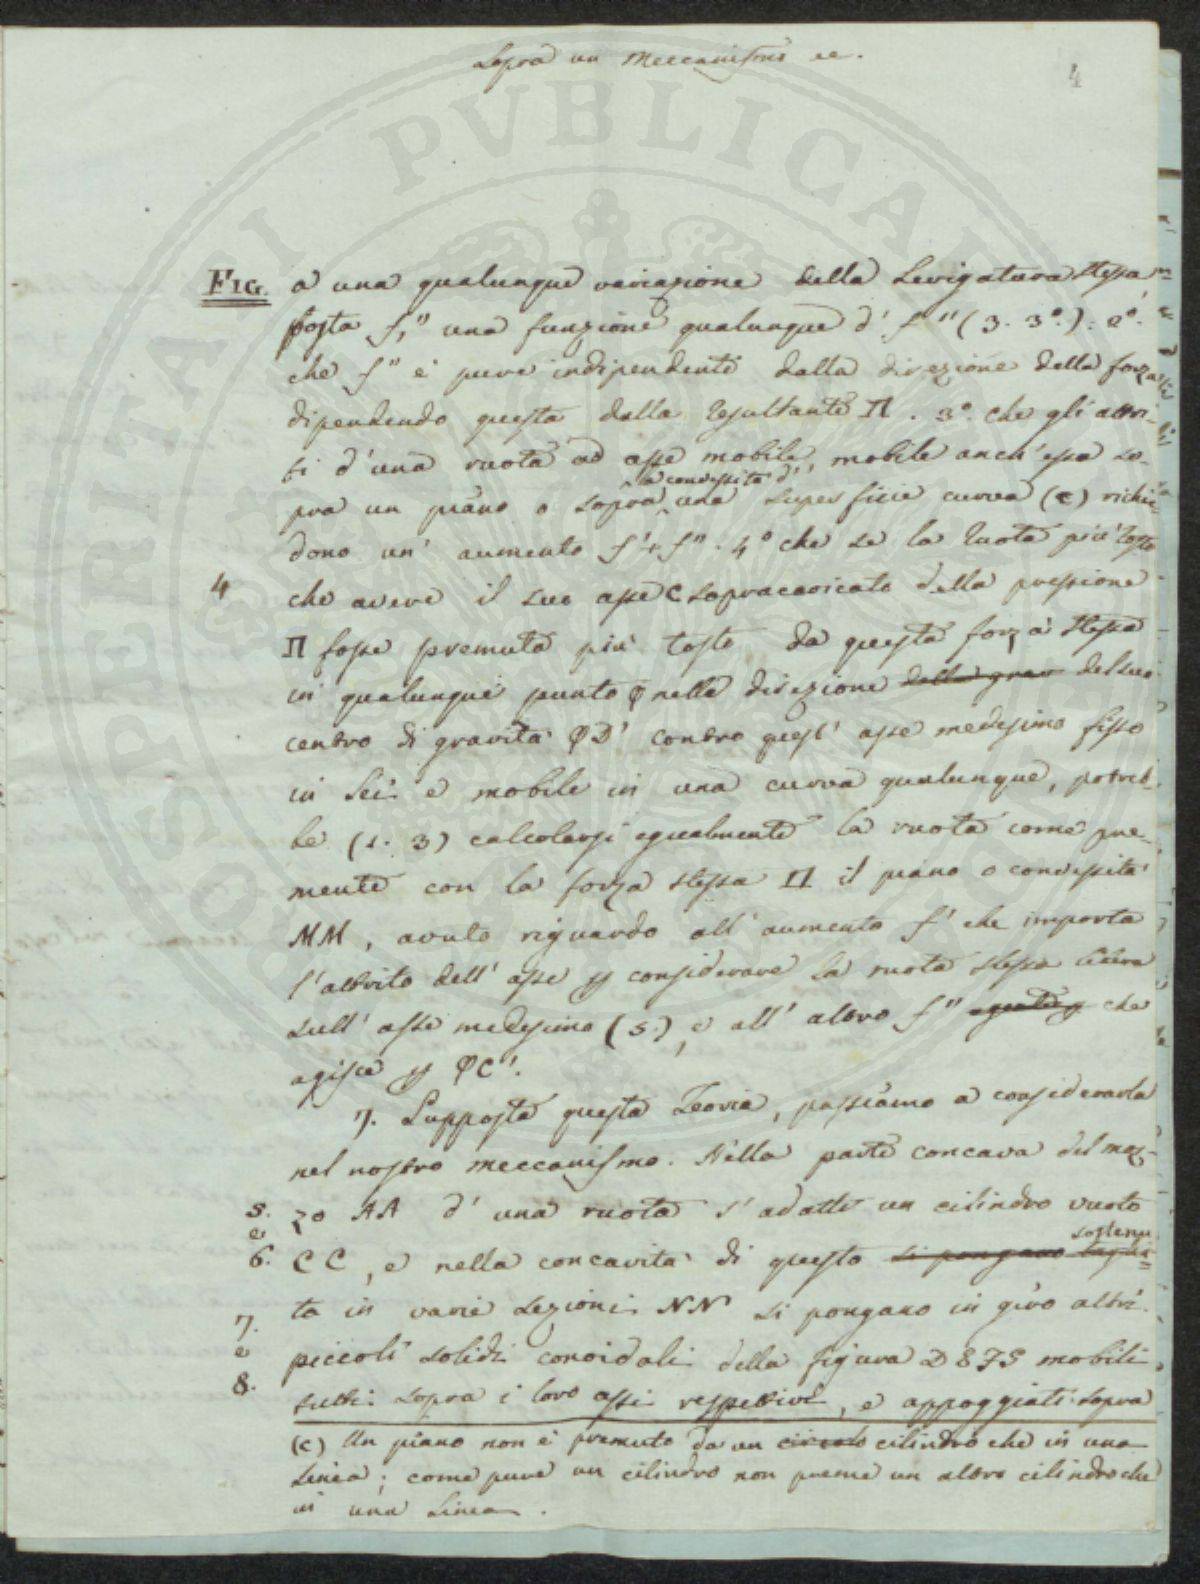 Sopra un Meccanismo ec.
4
FIG. a una qualunque variazione della Levigatura stessa,
posta f," una funzione qualunque d' f" (3. 3°.): 2°.
che f" è pure indipendente dalla direzione della forza
dipendendo questa dalla resultante Π. 3°. che gli attri-
ti d'una ruota ad asse mobile, mobile anch'essa so-
a convessità d'
pra un piano o sopra una superficie curva (c) richie-
dono un' aumento f'+f". 4° che se la ruota più tosto
4 che avere il suo asse C sopracaricato della pressione
Π fosse premuta più tosto da questa forza stessa
in qualunque punto φ nella direzione della grav del suo
centro di gravità φD' contro quest' asse medesimo fisso
in sei e mobile in una curva qualunque, potreb-
be (1. 3) calcolarsi egualmente la ruota come pre-
mente con la forza stessa Π il piano o convessità
MM, avuto riguardo all' aumento f' che importa
l'attrito dell' asse p considerare la ruota stessa libera
sull' asse medesimo (5.), e all' altro f" che
agisce p φC'.
7. Supposta questa Teoria, passiamo a considerarla
nel nostro meccanismo. Nella parte concava del moz-
5. zo AA d' una ruota s' adatti un cilindro vuoto
e
sostenu
6. CC, e nella concavità di questo si pongano
ta in varie sezioni NN si pongano in giro altri
7.
e piccoli solidi conoidali della figura D 8 7 S mobili
8. tutti sopra i loro assi respettivi, e appoggiati sopra
(c) Un piano non è premuto da un circolo cilindro che in una
Linea; come pure un cilindro non preme un altro cilindro che
in una Linea.